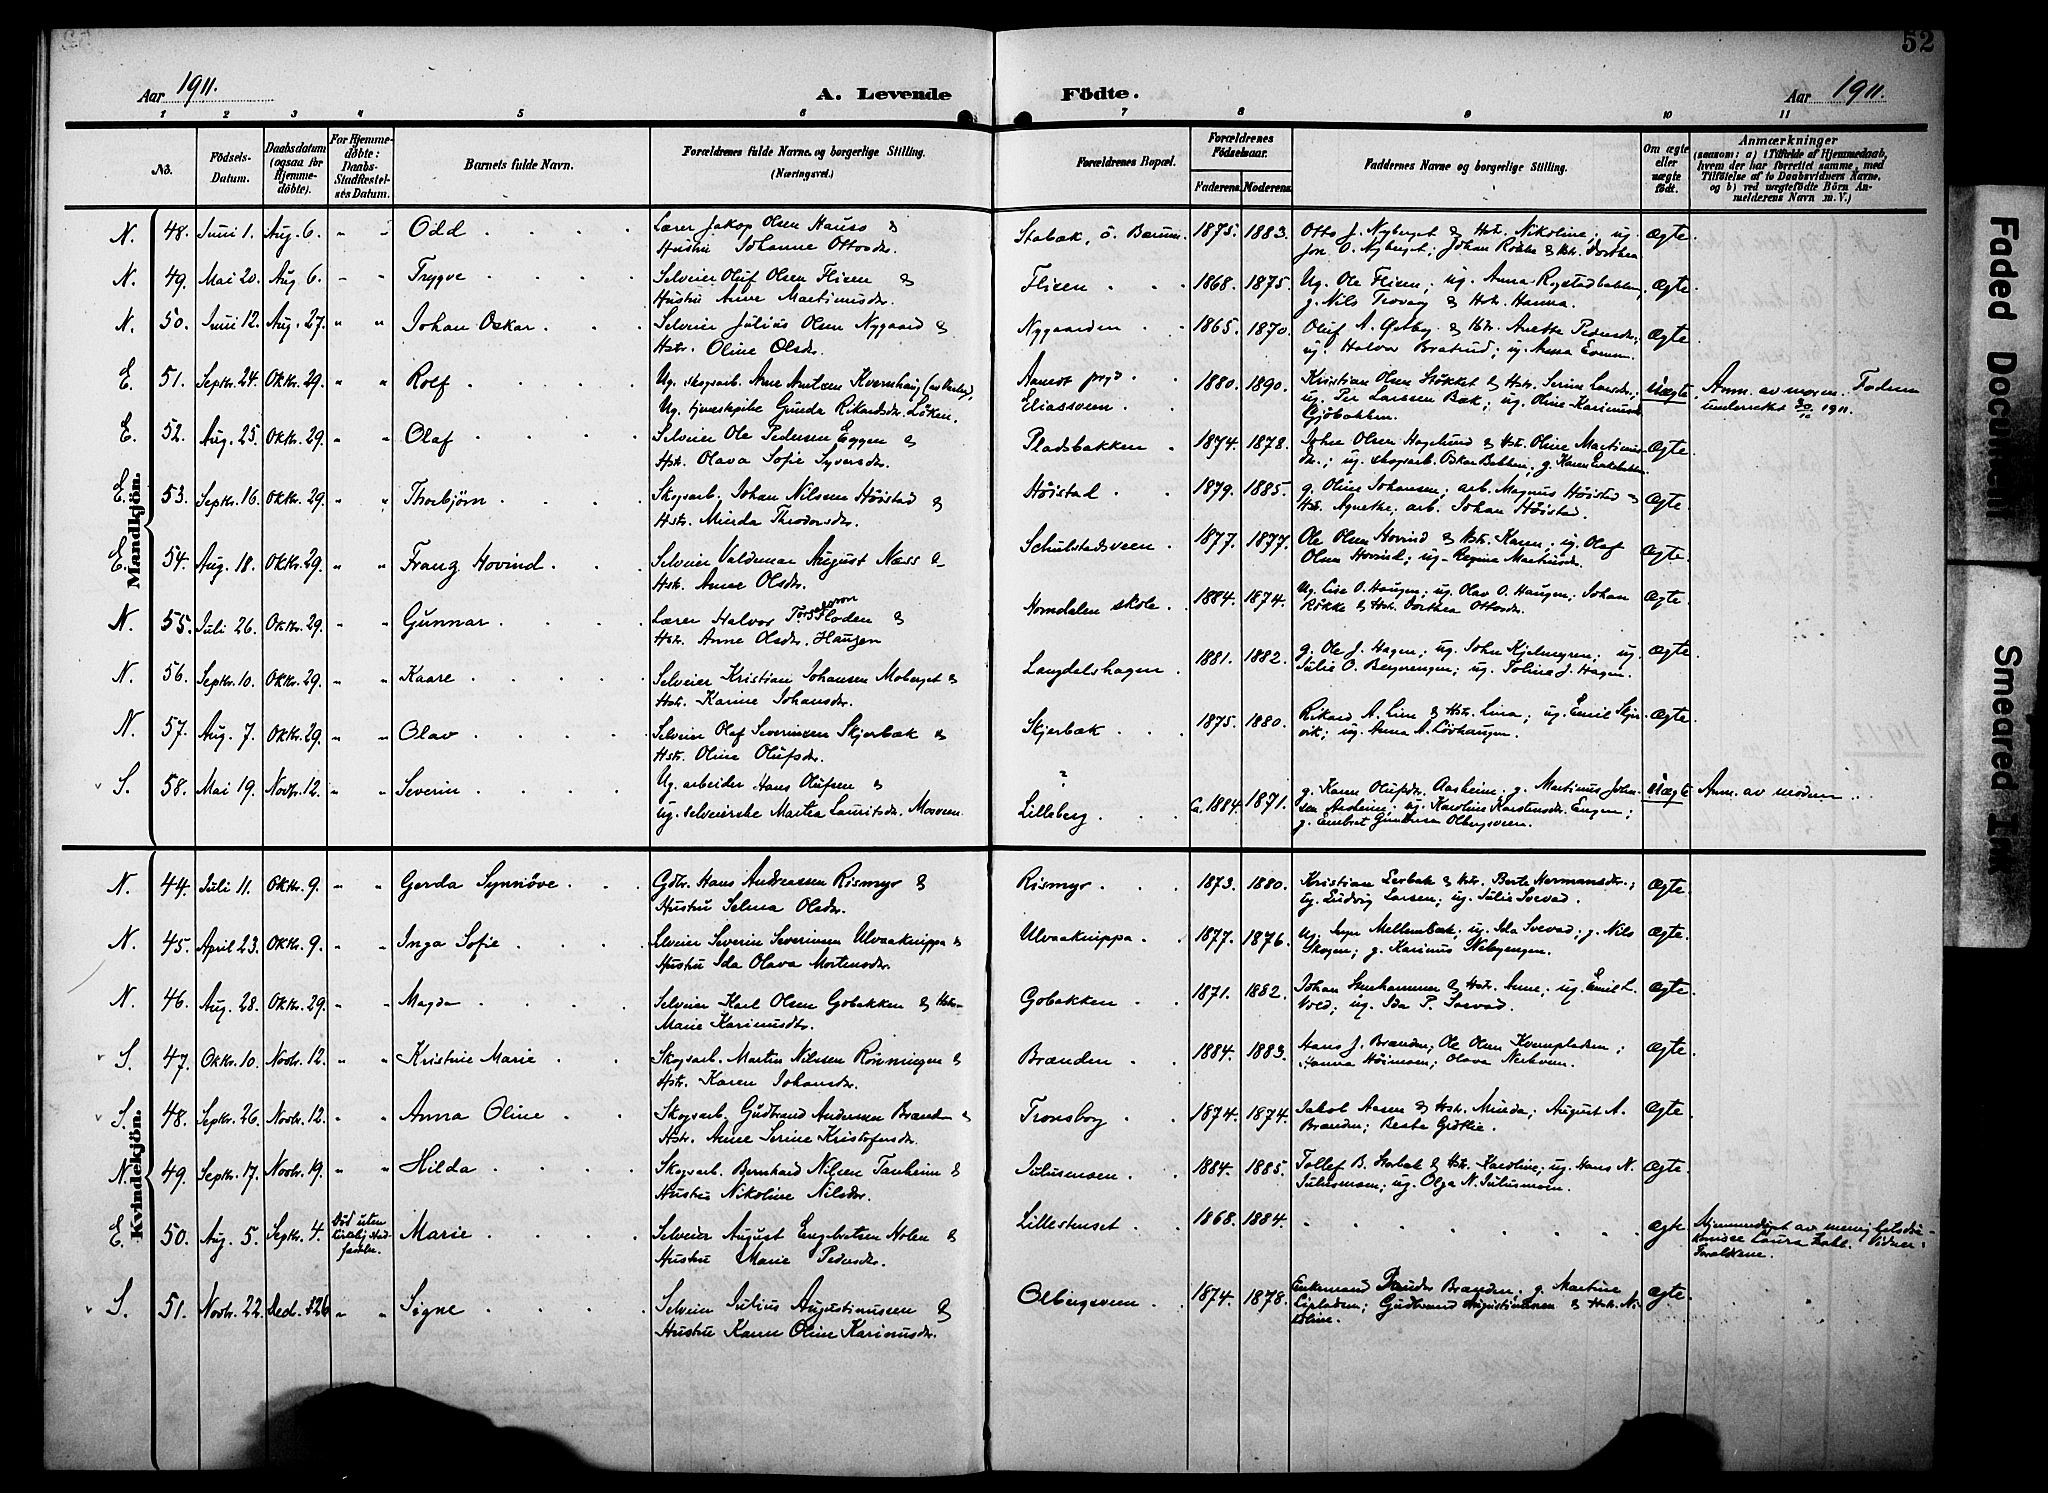 52
Aar 1911.
A. Levende Födte.
Aar 1911.
1 2 3 4 5 6 7 8 9 10 11
No.
Födsels-Datum.
Daabsdatum (ogsaa for Hjemme-döbte).
For Hjemme-döbte: Daabs-Stadfæstel-ses Datum.
Barnets fulde Navn.
Forældrenes fulde Navne og borgerlige Stilling. (Næringsvei.)
Forældrenes Bopæl.
Forældrenes Födselsaar.
Faderens. Moderens.
Faddernes Navne og borgerlige Stilling.
Om ægte eller uægte födt.
Anmærkninger
(saasom: a) i Tilfælde af Hjemmedaab, hvem der har forrettet samme, med Tilföielse af to Daabsvidners Navne, og b) ved uægtefödte Börn An-melderens Navn m. V.)
Mandkjön.
N. 48. Juni 1. Aug. 6. " " Odd
Lærer Jakop Olsen Hauso &
Hustru Johanne Ottosdr.
Stabæk, ö. Bærum. 1875. 1883.
Otto J. Nyberget & Hst. Nikoline; ug.
Jon O. Nyberget; Johan Rökke & Hst. Dorthea
Ægte.
N. 49. Mai 20. Aug 6. " " Trygve
Selveier Oluf Olsen Flisen &
Hustru Anne Martinusdr.
Flisen 1868. 1875.
Ug. Ole Flisen; ug. Anna Rystadbakken,
g. Nils Trovaag & Hst. Hanna.
Ægte.
N. 50. Juni 12. Aug. 27. " " Johan Oskar
Selveier Julius Olsen Nygaard &
Hstr. Oline Olsdr.
Nygaarden 1865. 1870.
Oluf A. & Hstr. Anette Pedersdr.;
ug. Halvor Bratrud; ug. Anna
Ægte.
E. 51. Septr. 24. Oktr. 29. " " Rolf
Ug. skogsarb. Arne Arntzen Kvernhaug
Ug. tjenestepike Gunda Rikardsdr. Löken.
Aamot
Eliassveen 1880. 1890.
Kristian Olsen Stökket & Hst. Serine Larsdr.;
ug. Per Larssen Bæk; ug. Oline Karinusdr.
Gjöbakken.
Uægte.
Anm. av moren. Faderen
underrettet 30/10 1911.
E. 52. Aug. 25. Oktr. 29. " " Olaf
Selveier Ole Pedersen Eggen &
Hstr. Olava Sofie Syversdr.
Pladsbakken 1874. 1878.
Johan Olsen Hagelund & Hst. Oline Martinus-
dr.; ug. skogsarb. Oskar Bakken; g. Karen
Ægte.
E. 53. Septr. 16. Oktr. 29. " " Thorbjörn
Skogsarb. Johan Nilssen Höistad &
Hstr. Minda Theodorsdr.
Höistad 1879. 1885.
g. Oline Johansen; arb. Magnus Höistad &
Hst. Agnethe; arb. Johan Höistad.
Ægte.
E. 54. Aug. 18. Oktr. 29. " " Franz Hovind
Selveier Valdemar August Næss &
Hst. Anne Olsdr.
Schulstadsveen. 1877. 1877.
Ole Olsen Hovind & Hst. Karen; ug. Olaf
Olsen Hovind; ug. Regina Martinsdr.
Ægte.
N. 55. Juli 26. Oktr. 29. " " Gunnar
Lærer Halvor Floden &
Hst. Anne Olsdr. Haugen
Horndalen skole. 1884. 1874.
Ug. Lise O. Haugen; ug. Olav O. Haugen; Johan
Rökke & Hst. Dorthea Ottosdr.
Ægte.
N. 56. Septr. 10. Oktr. 29. " " Kaare
Selveier Kristian Johansen Moberget &
Hst. Karine Johansdr.
Langdelshagen 1881. 1882.
g. Ole J. Hagen; ug. John Kjelmyren; ug.
Julie O. Bergerengen; ug. Jolina J. Hagen.
Ægte.
N. 57. Aug. 7. Oktr. 29. " " Olav
Selveier Olaf Severinsen Skjerbæk &
Hst. Oline Olufsdr.
Skjerbæk 1875. 1880.
Rikard A. Line & Hst. Lina; ug. Emil Skjer-
vik; ug. Anna A. Lövhaugen.
Ægte.
S. 58. Mai 19. Novbr. 12. " " Severin
Ug. arbeider Hans Olufsen &
ug. selveierske Martea Lauritsdr. Mosveen.
?
Lilleberg Ca. 1884. 1871.
g. Karen Olufsdr. Aasheim; g. Martinus Johan-
sen Aasheim; ug. Karoline Karstensdr. Engen;
g. Embret Gundersen Olbergsveen.
Uægte
Anm. av moderen
Kvindekjön.
N. 44. Juli 11. Oktr. 9. " " Gerda Synnöve
Gdbr. Hans Andreassen Rismyr &
Hustru Selma Olsdr.
Rismyr 1873. 1880.
Kristian Lerbæk & Hst. Berte Hermansdr.;
ug. Ludvig Larsen; ug. Julie Svevad.
Ægte.
N. 45. April 23. Oktr. 9. " " Inga Sofie
Selveier Severin Severinsen Ulvaaknippa &
Hustru Ida Olava Mortensdr.
Ulvaaknippa 1877. 1876.
Ug. Mellembæk; ug. Ida Svevad; g. Nils
Skogen; g. Karinus Nebyengen.
Ægte.
N. 46. Aug. 28. Oktr. 29. " " Magda
Selveier Karl Olsen Gobakken & Hst.
Marie Karinusdtr.
Gobakken 1871. 1882.
Johan Stenhammer & Hst. Anne; ug. Emil L.
Vold; ug. Ida P. Svevad.
Ægte.
S. 47. Oktr. 10. Novbr. 12. " " Kristine Marie
Skogsarb. Martin Nilssen Rönningen &
Hst. Karen Johansdr.
Brænden 1884. 1883.
Hans J. Brænden; Ole Olsen Kvernpladsen;
Hanna Höimoen; Olava Nerhoven.
Ægte.
S. 48. Septr. 26. Novbr. 12. " " Anna Oline
Skogsarb. Gudbrand Andersen Brænden &
Hst. Anne Serine Kristofersdr.
Tronsborg 1874. 1874.
Jakob Aasen & Hst. Minda; August A.
Brænden; Beate Gröttlie.
Ægte.
N. 49. Septr. 17. Novbr. 19. " " Hilda
Skogsarb. Bernhard Nilsen Tanheim &
Hustru Nikoline Nilsdr.
Juliusmoen 1884. 1885.
Tollef B. Storbæk & Hst. Karoline; ug. Hans N.
Juliusmoen; ug. Olga N. Juliusmoen.
Ægte.
E. 50. Aug. 5. Septr. 4. Död uten kirkelig stad-fæstelse. Marie
Selveier August Engebretsen Holen &
Hustru Marie Pedersdr.
Lillestuset 1868. 1884. " " " "
Ægte
Hjemmedöpt av menighetsdia-
konisse Laura Vidner:
Forældrene.
S. 51. Novbr. 22. Decbr. 26 " " Signe
Selveier Julius Augustinussen &
Hustru Karen Oline Karinusdr.
Olbergsveen 1874. 1878.
Enkemand Peder Brænden; g. Martine
Lipladsen; Gudbrand Augustinussen & Hst. Ni-
koline.
Ægte.
Faded Document
Smeared Ink